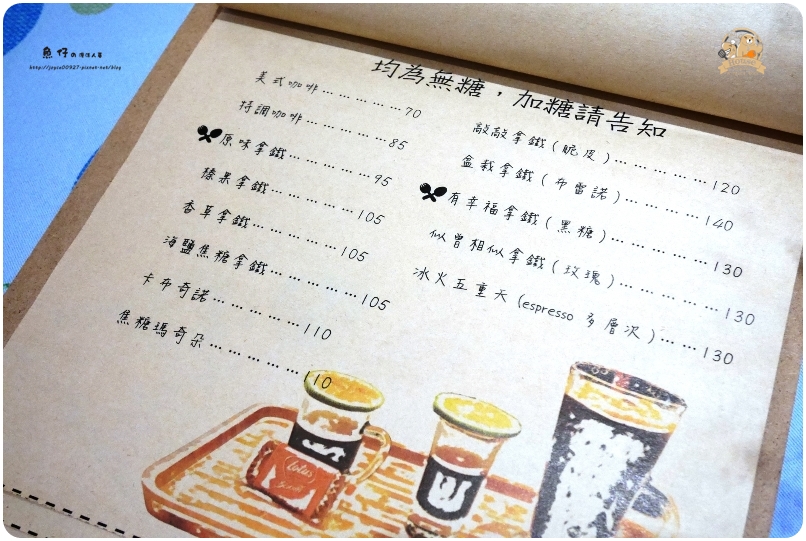 魚仔
http://joyce00927.pixnet.net/blog
均為無糖，加糖請告知
美式咖啡………………70
特調咖啡………………85
原味拿鐵………………95
榛果拿鐵………………105
香草拿鐵………………105
海鹽焦糖拿鐵………………105
卡布奇諾………………110
焦糖瑪奇朵………………110
敲敲拿鐵(脆皮)………………120
盆栽拿鐵(布雷諾)………………140
有幸福拿鐵(黑糖)………………130
似曾相似拿鐵(玫瑰)………………130
冰火五重天(espresso 多層次)………130
Lotus